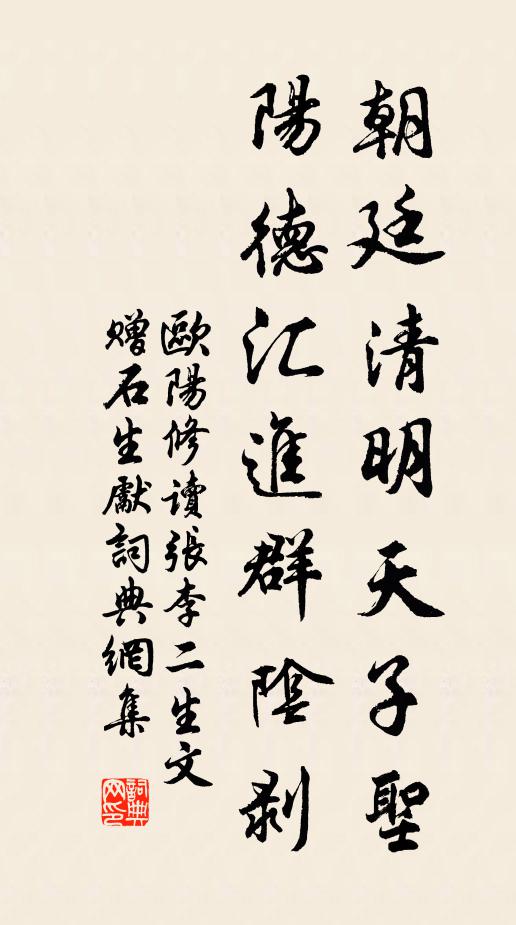 朝廷清明天子聖
陽德汇進群陰剥
歐陽修讀張李二生文
贈石生獻詞典網集
詞典网印